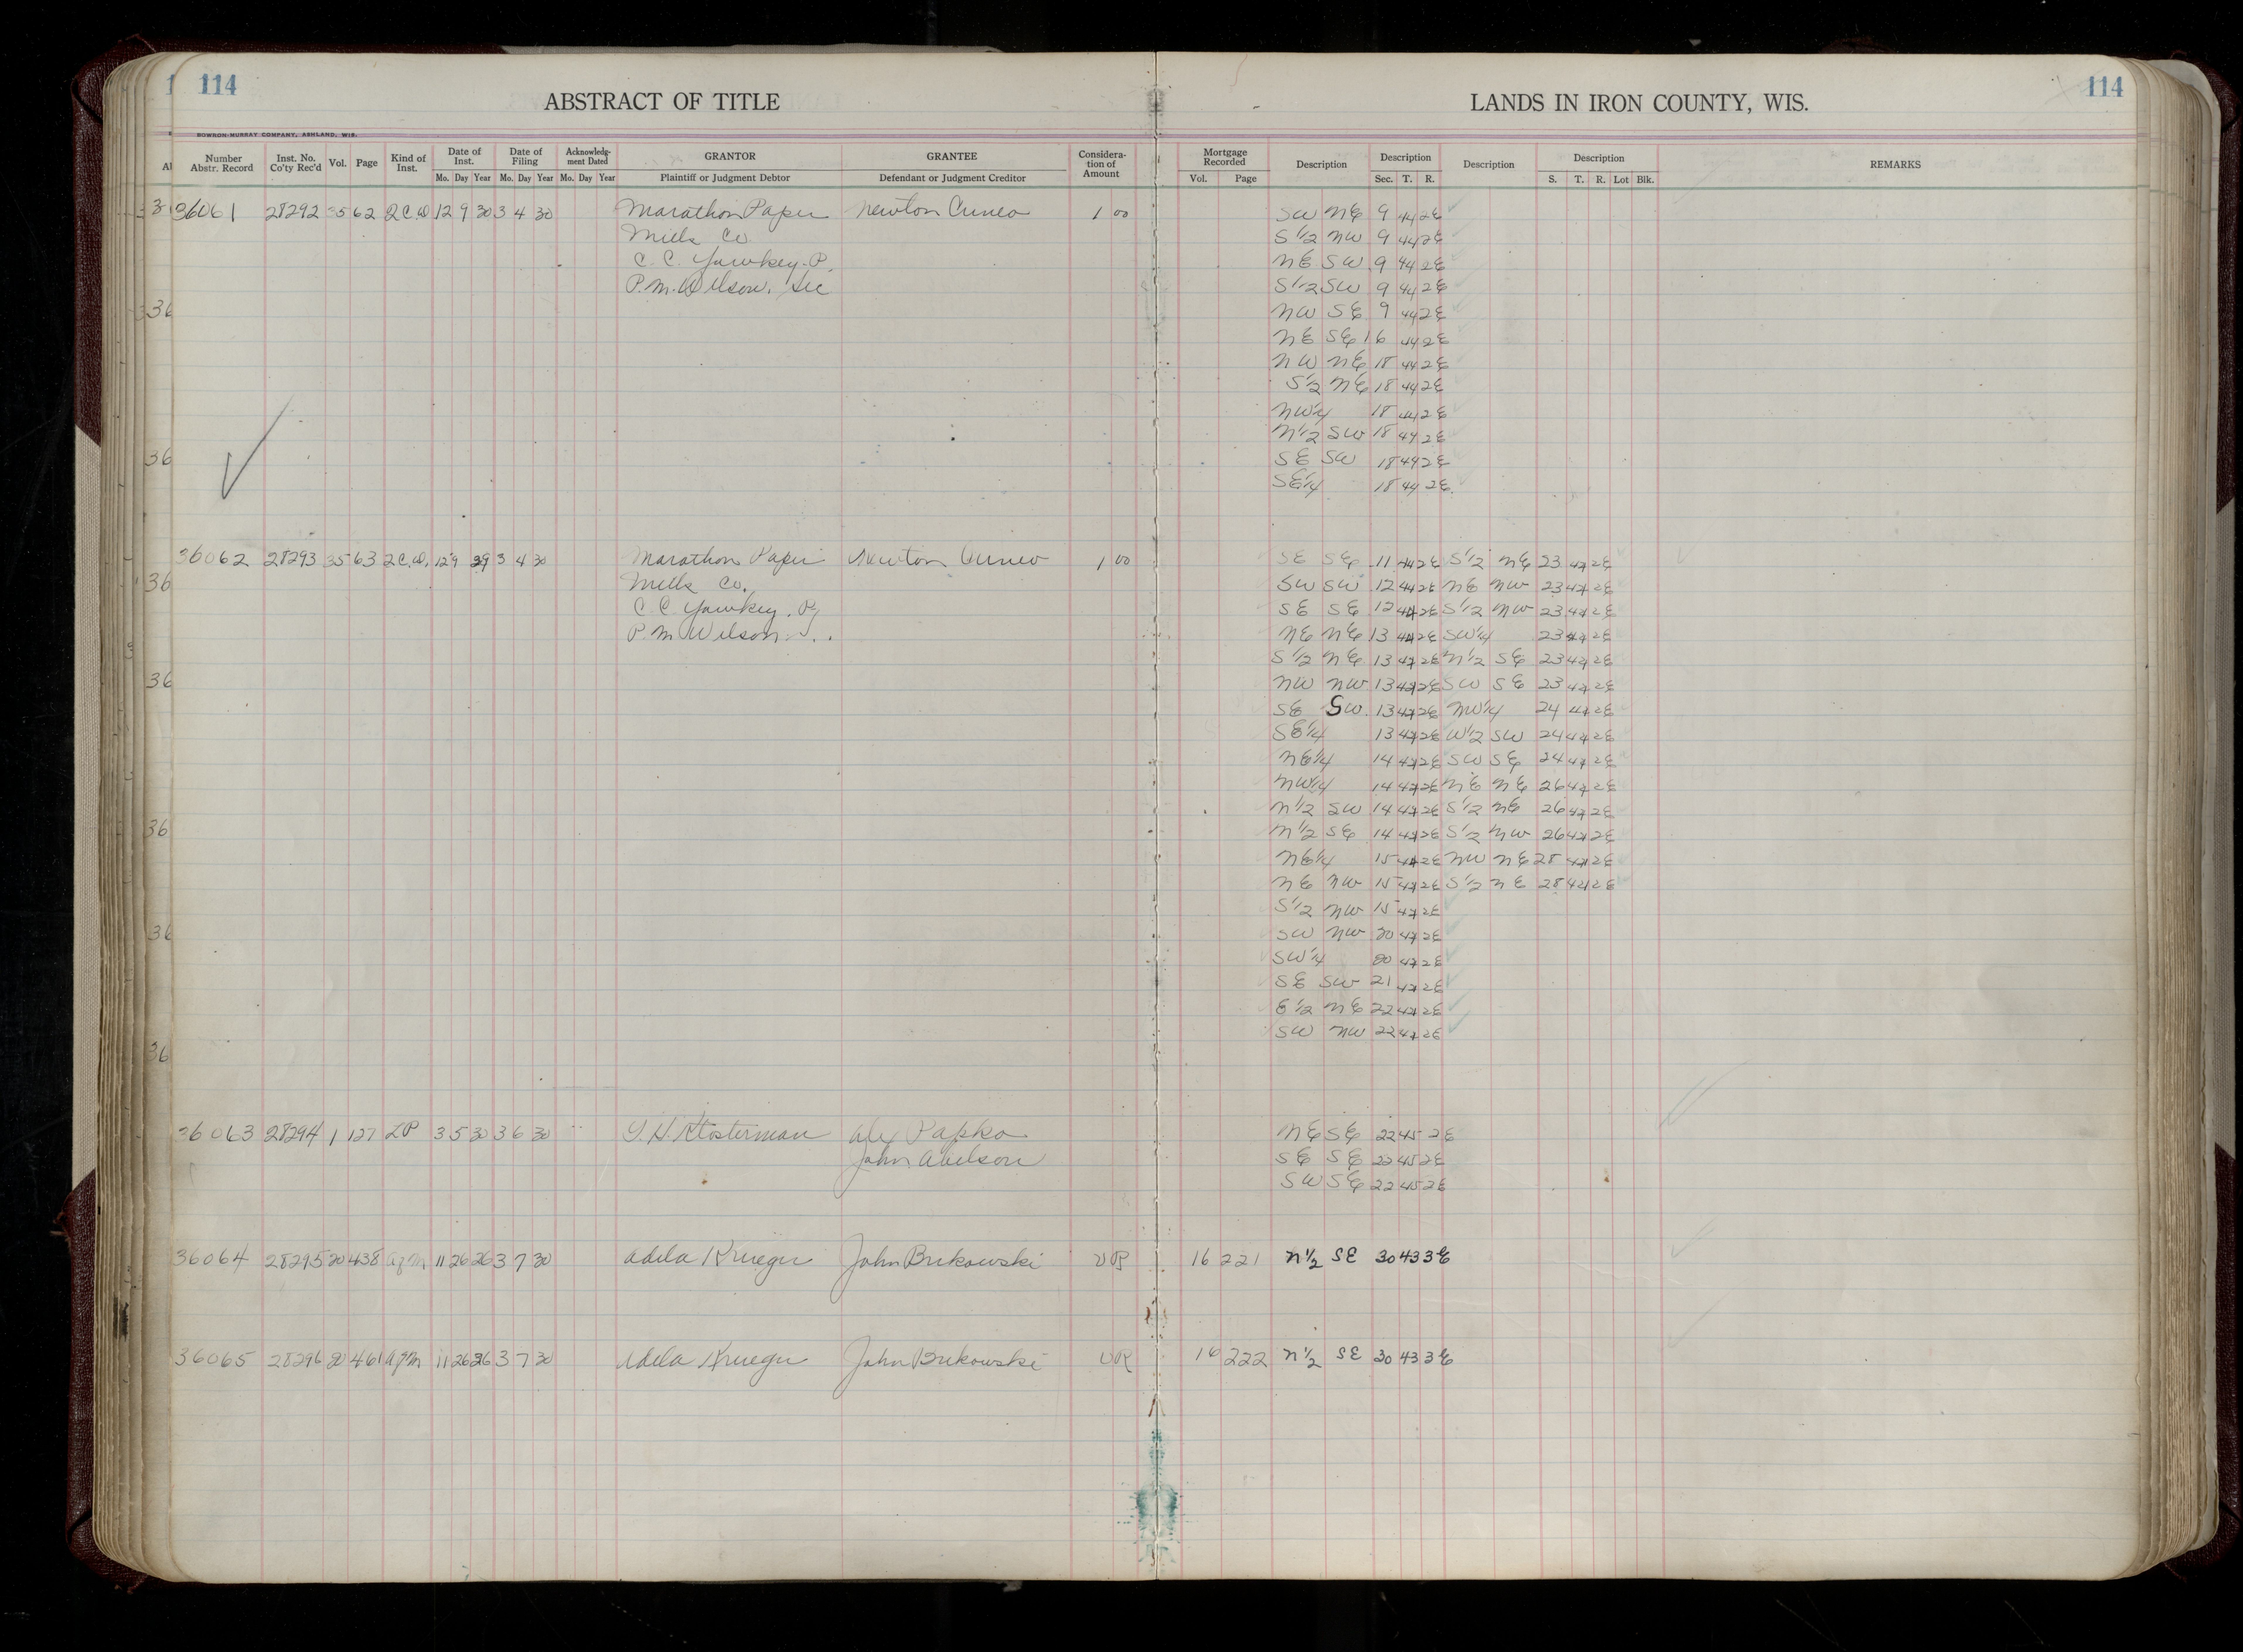 114
ABSTRACT OF TITLE
LANDS IN IRON COUNTY, WIS.
114
BOWRON-MURRAY COMPANY, ASHLAND, WIS.
Number Abstr. Record Inst. No. Co'ty Rec'd Vol. Page Kind of Inst. Date of Inst. Mo. Day Year Date of Filing Mo. Day Year Acknowledg-ment Dated Mo. Day Year GRANTOR Plaintiff or Judgment Debtor GRANTEE Defendant or Judgment Creditor Considera-tion of Amount Mortgage Recorded Vol. Page Description Description Sec. T. R. Description Description S. T. R. Lot Blk. REMARKS
36061 28292 35 62 2C.D 12 9 30 3 4 30 Marathon Paper Newton Cuneo 1 00 SW NE 9 44 2E
Mills Co. S 1/2 NW 9 44 2E
C. C. Yawkey. P. NE SW 9 44 2E
P. M. Wilson, Sec S 1/2 SW 9 44 2E
NW SE 9 44 2E
NE SE 16 44 2E
NW NE 18 44 2E
S 1/2 NE 18 44 2E
NW 1/4 18 44 2E
N 1/2 SW 18 44 2E
SE SW 18 44 2E
SE 1/4 18 44 2E
36062 28293 35 63 2C.D. 12 9 29 3 4 30 Marathon Paper Newton Cuneo 1 00 SE SE 11 2E S 1/2 NE 23 2E
Mills Co. SW SW 12 2E NE NW 23 2E
C. C. Yawkey. P. SE SE 12 2E S 1/2 NW 23 2E
P. M. Wilson NE NE 13 2E SW 1/4 23 2E
S 1/2 NE 13 2E N 1/2 SE 23 2E
NW NW 13 2E SW SE 23 2E
SE SW 13 2E NW 1/4 24 2E
SE 1/4 13 2E W 1/2 SW 24 2E
NE 1/4 14 2E SW SE 24 2E
NW 1/4 14 2E NE NE 26 2E
N 1/2 SW 14 2E S 1/2 NE 26 2E
N 1/2 SE 14 2E S 1/2 NW 26 2E
NE 1/4 15 2E NW NE 28 2E
NE NW 15 2E S 1/2 NE 28 2E
S 1/2 NW 15 2E
SW NW 20 2E
SW 1/4 20 2E
SE SW 21 2E
E 1/2 NE 22 2E
SW NW 22 2E
36063 28294 1 127 LP 3 5 30 3 6 30 Klosterman Alex Papko NE SE 22 45 2E
John Abelson SE SE 22 45 2E
SW SE 22 45 2E
36064 28295 20 438 agm 11 26 26 3 7 30 Adela Krueger John Bukowski VR 16 221 N 1/2 SE 30 43 3E
36065 28296 20 461 agm 11 26 26 3 7 30 Adela Krueger John Bukowski VR 16 222 N 1/2 SE 30 43 3E